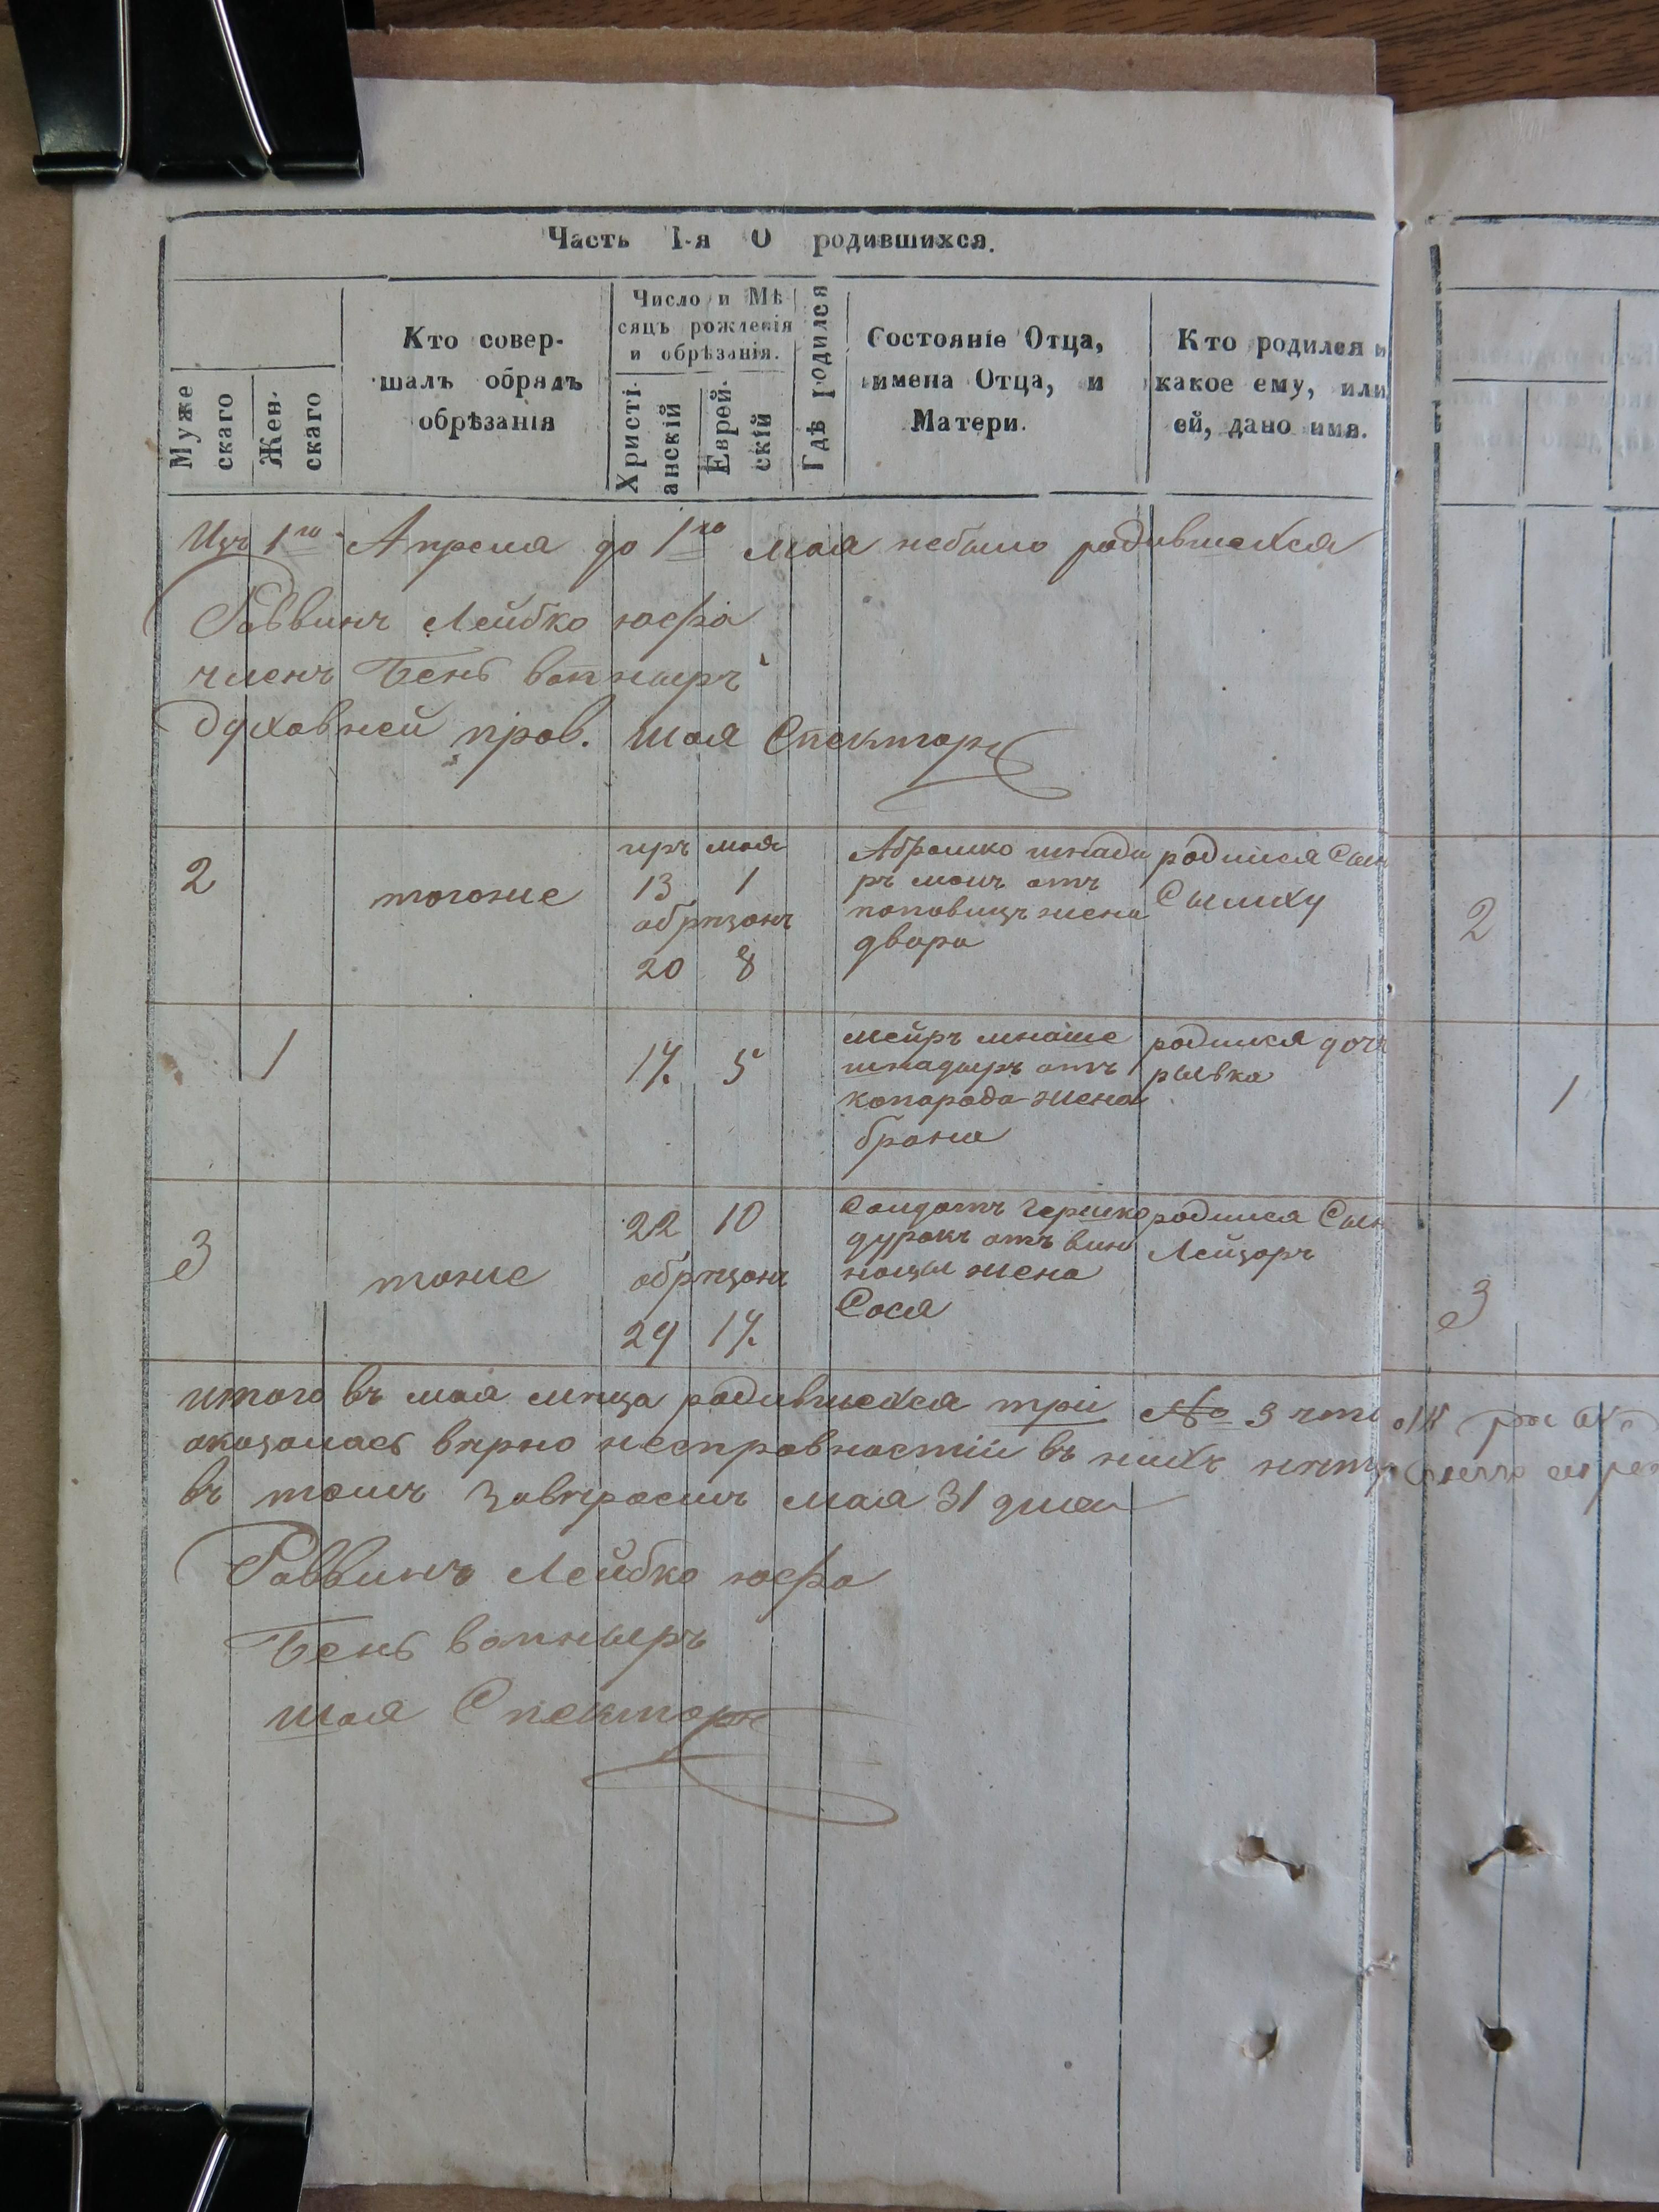 Часть І-я О родившихся.
Муже
скаго
Жен-
скаго
Кто совер-
шалъ обрядъ
обрѣзанія
Число и Мѣ
сяцъ рожденія
и обрѣзанія.
Христі-
анскій
Еврей-
скій
Гдѣ родился
Состояніе Отца,
имена Отца, и
Матери.
Кто родился и
какое ему, или
ей, дано имя.
1го Апреля до 1го мая небыло родившехся
Раввинъ Лейбко юсфа
членъ Бень вапныръ
духовней прав. шая Спекторъ
2
тогоже
мая
13 1
обрѣзанъ
20 8
Абрашко шнади
ръ отъ
поповицъ жена
двора
родился Сын
Сымху
1
17. 5
мейръ мнаше
шнадыръ отъ
копарода жена
брана
родился доч
рывка
3
тоже
22 10
обрѣзанъ
29 17.
Солдатъ Гершко
дуракъ отъ вин
ницы жена
Сося
родился Сын
Лейзоръ
итого въ мая мѣца родившехся три № 3 что
оказалась вѣрно несправностіи въ нихъ нѣту
въ томъ завѣраемъ мая 31 дня
Раввинъ Лейбко юсфа
Бень вапныръ
шая Спекторъ
2
1
3